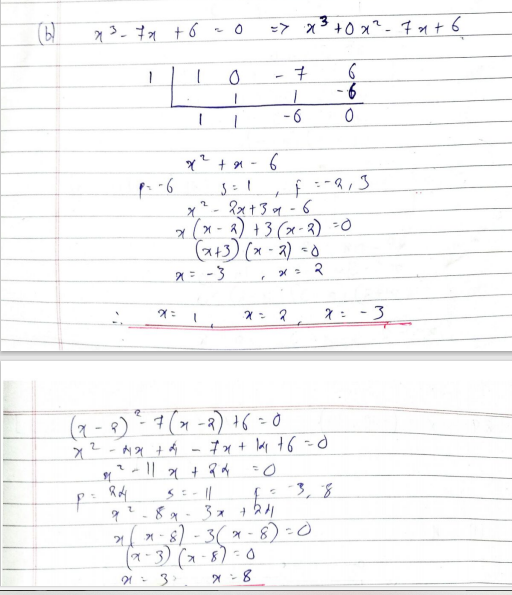 (b) x³ - 7x + 6 = 0 => x³ + 0x² - 7x + 6
1 | 1 0 -7 6
1 1 -6
1 1 -6 0
x² + x - 6
p = -6 s = 1, f = -2, 3
x² - 2x + 3x - 6
x(x - 2) + 3(x - 2) = 0
(x+3)(x - 2) = 0
x = -3, x = 2
∴ x = 1, x = 2, x = -3
(x - 2)² - 7(x - 2) + 6 = 0
x² - 4x + 4 - 7x + 14 + 6 = 0
x² - 11x + 24 = 0
p = 24 s = -11 f = -3, -8
x² - 8x - 3x + 24
x(x - 8) - 3(x - 8) = 0
(x - 3)(x - 8) = 0
x = 3 x = 8